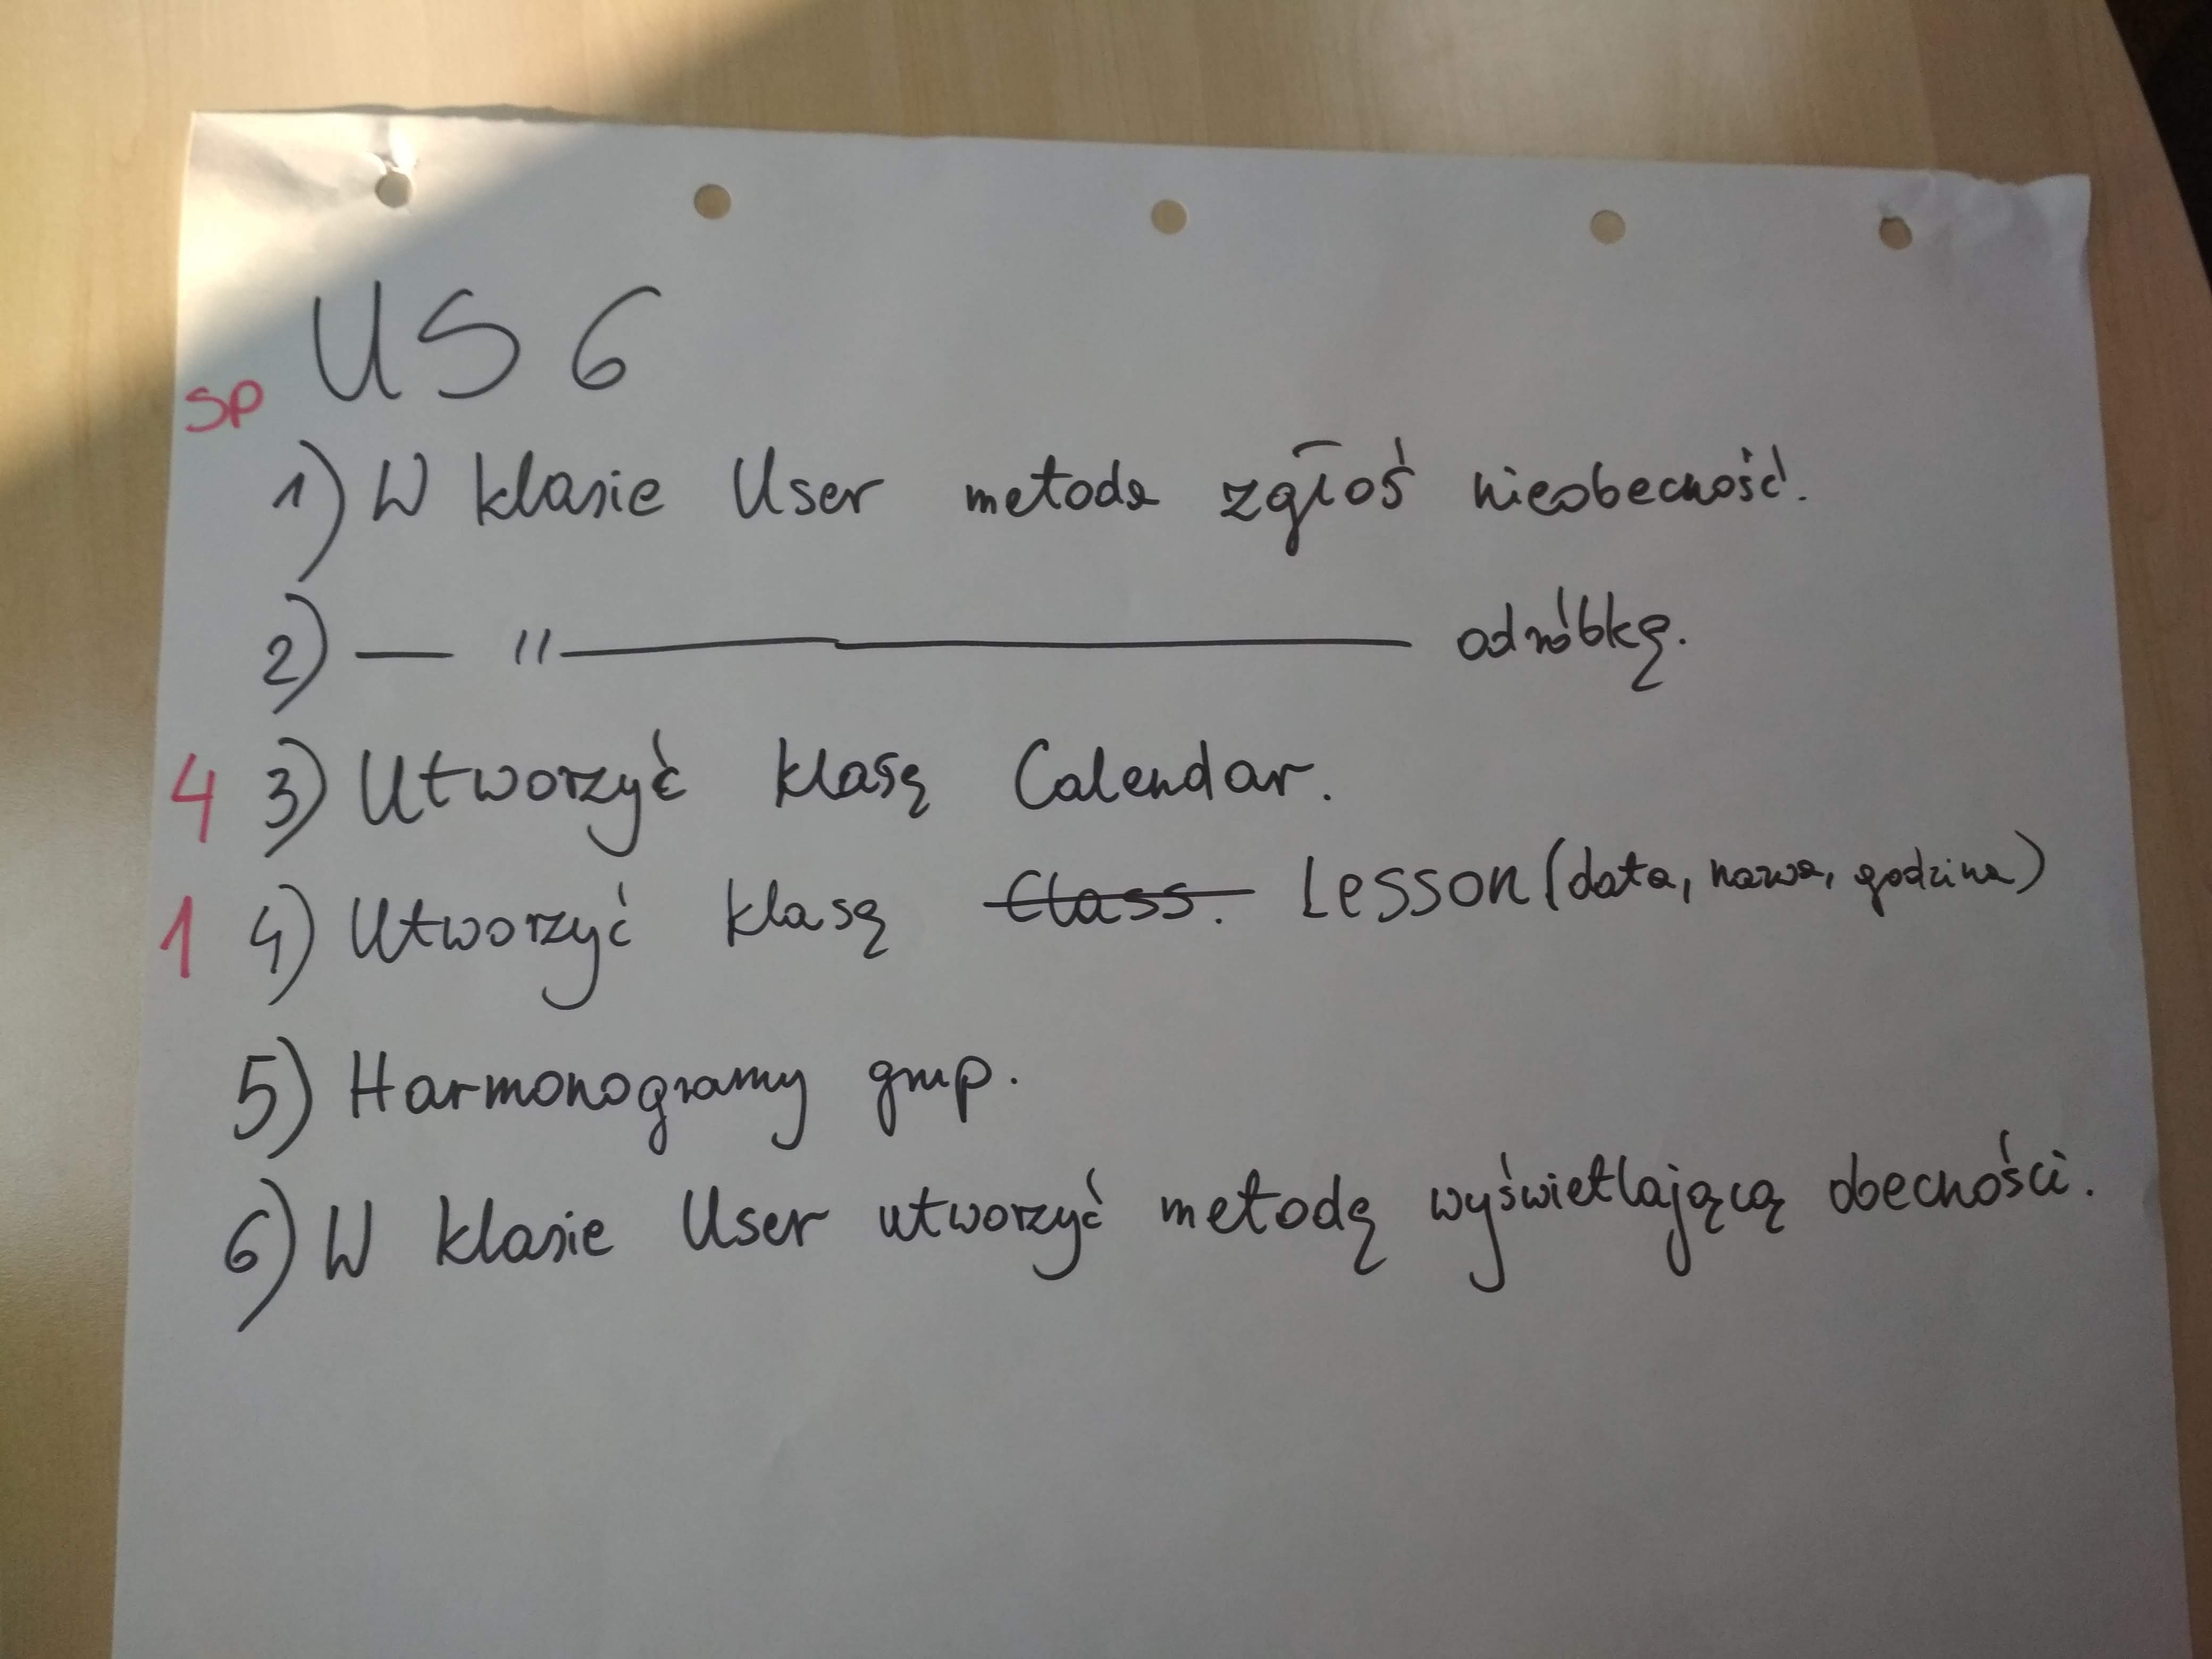 US 6
SP
1) W klasie User metoda zgłoś nieobecność.
2) — " — odróbkę.
4 3) Utworzyć klasę Calendar.
1 4) Utworzyć klasę Class. Lesson (data, nazwa, godzina)
5) Harmonogramy grup.
6) W klasie User utworzyć metodę wyświetlającą obecności.